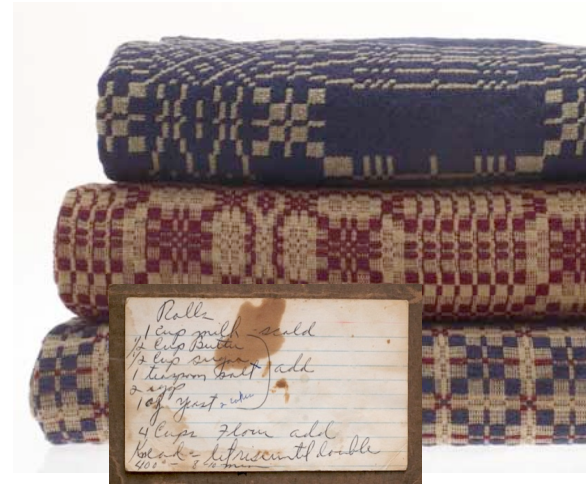 Rolls
1 Cup milk - scald
1/2 Cup Butter
1/2 Cup sugar
1 teaspoon salt add
2 eggs
1 pkg Yeast
4 Cups Flour add
Knead - let rise until double
400° - 8 10 min